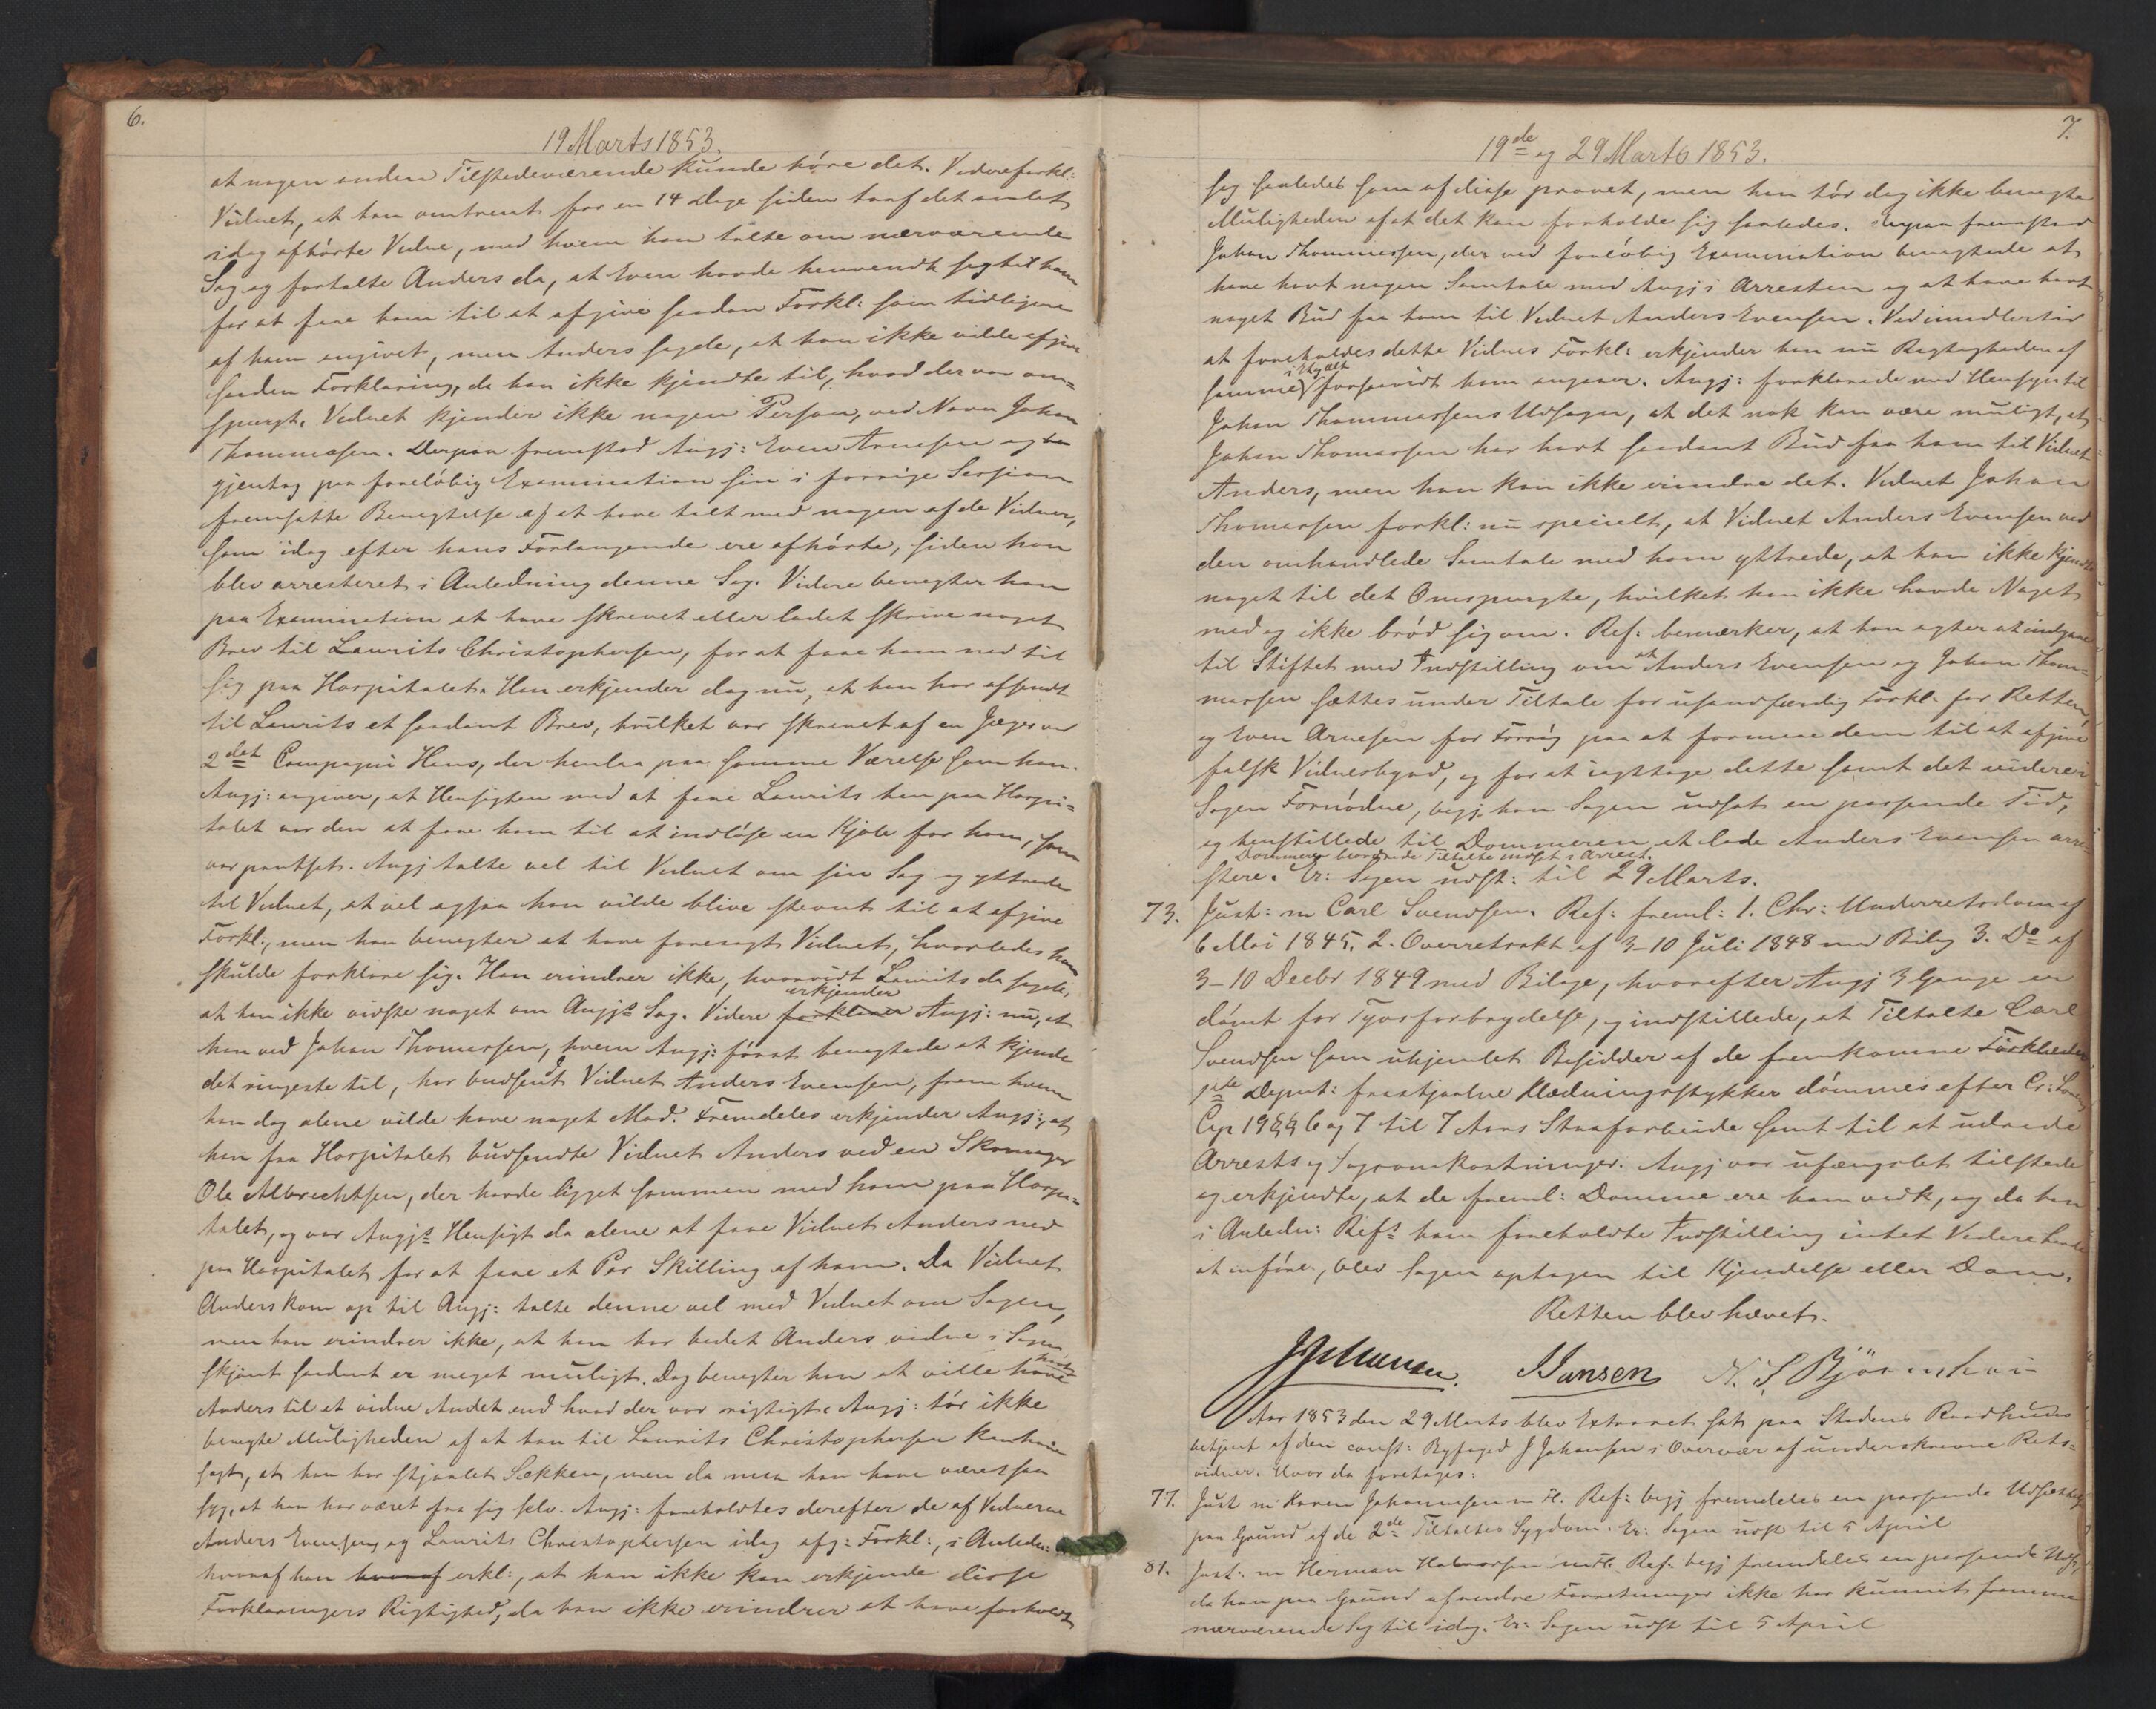 6.
19 Marts 1853.
at nogen anden Tilstedeværende kunde høre det. Videre forkl:
Vidnet, at han omtrent for en 14 Dage siden traf det andet
idag afhørte Vidne, med hvem han talte om nærværende
Sag og fortalte Anders da, at Even havde henvendt sig til ham
for at faae ham til at afgive saadan Forkl: som tidligere
af ham angivet, men Anders sagde, at han ikke vilde afgive
saadan Forklaring, da han ikke kjendte til, hvad der var om=
spurgt. Vidnet kjender ikke nogen Person ved Navn Johan
Thommesen. Derpaa fremstod Angj: Even Arnesen og
gjentog paa foreløbig Examination sin i forrige Session
fremsatte Benegtelse af at have talt med nogen af de Vidner,
som idag efter hans Forlangende ere afhørte, siden han
blev arresteret i Anledning denne Sag. Videre benegter han
paa Examination at have skrevet eller ladet skrive noget
Brev til Laurits Christophersen, for at faae ham ned til
sig paa Hospitalet. Han erkjender dog nu, at han har afsendt
til Laurits et saadant Brev, hvilket var skrevet af en Jæger ved
2det Compagni Hans, der henlaa paa samme Værelse som han.
Angj: angiver, at Hensigten med at faae Laurits hen paa Hospi=
talet var den at faae ham til at indløse en Kjole for ham, som
var pantsat. Angj talte vel til Vidnet om sin Sag og yttrede
til Vidnet, at vel ogsaa han vilde blive stevnt til at afgive
Forkl:, men han benegter at have foresagt Vidnet, hvorledes han
skulde forklare sig. Han erindrer ikke, hvorvidt Laurits da sagde,
at han ikke vidste noget om Angjs Sag. Videre forklarer erkjender Angj: nu, at
han ved Johan Thomassen, hvem Angj: først benegtede at kjende
det ringeste til, har budsendt Vidnet Anders Evensen, from hvem
han dog alene vilde have noget Mad. Fremdeles erkjender Angj:, at
han fra Hospitalet budsendte Vidnet Anders ved en Skomager
Ole Albrechtsen, der havde ligget sammen med ham paa Hospi=
talet, og var Angjs Hensigt da alene at faae Vidnet Anders ned
paa Hospitalet for at faae et Par Skilling af ham. Da Vidnet
Anders kom op til Angj: talte denne vel med Vidnet om Sagen,
men han erindrer ikke, at han har bedet Anders vidne i Sagen,
skjønt saadant er meget muligt. Dog benegter han at ville have havt
Anders til at vidne Andet end hvad der var rigtigt. Angj: tør ikke
benegte Muligheden af at han til Laurits Christophersen kan have
sagt, at han har stjaalet Sækken, men da maa han have været saa
syg, at han har været fra sig selv. Angj: foreholdtes derefter de af Vidnerne
Anders Evensen og Laurits Christophersen idag afg: Forkl:, i Anledn:
hvoraf han hvoraf erkl:, at han ikke kan erkjende disse
Forklaringers Rigtighed, da han ikke erindrer at have forholdt
7.
19de og 29 Marts 1853.
sig saaledes som af disse prøvet, men han tør dog ikke benegte
Muligheden af at det kan forholde sig saaledes. Derpaa fremstod
Johan Thommessen, der ved foreløbig Examination benegtede at
have havt nogen Samtale med Angj i Arresten og at have havt
noget Bud fra ham til Vidnet Anders Evensen. Ved imidlertid
at foreholdes dette Vidnes Forkl: erkjender han nu Rigtigheden af
samme i Et og Alt forsaavidt ham angaaer. Angj: forklarede med Hensyn til
Johan Thommassens Udsagn, at det nok kan være muligt, at
Johan Thomassen har havt saadant Bud fra ham til Vidnet
Anders, men han kan ikke erindre det. Vidnet Johan
Thomassen forkl: nu specielt, at Vidnet Anders Evensen ved
den omhandlede Samtale med ham yttrede, at han ikke kjendte
noget til det Omspurgte, hvilket han ikke havde Noget
med og ikke brød sig om. Ref: bemærker, at han agter at indgaae
til Stiftet med Indstilling om at Anders Evensen og Johan Thom=
massen sættes under Tiltale for usandfærdig Forkl. for Retten,
og Even Arnesen for Forsøg paa at formaae dem til at afgive
falsk Vidnesbyrd, og for at iagttage dette samt det videre i
Sagen Fornødne, begj. han Sagen udsat en passende Tid,
og henstillede til Dommeren at lade Anders Evensen arre=
Dommeren beordrede Tiltalte indsat i Arrest.
stere. Er: Sagen udst: til 29 Marts.
73. Just: m Carl Svendsen. Ref: freml: 1. Chr: Underretsdom af
6 Mai 1845. 2. Overretsakt af 3-10 Juli 1848 med Bilag 3. Do af
3-10 Decbr 1849 med Bilage, hvorefter Angj 3 Gange er
dømt for Tyvsforbrydelse, og indstillede, at Tiltalte Carl
Svendsen som uhjemlet Besidder af de fremkomne
1ste Deput: frastjaalne Klædningsstykker dømmes efter Cr: Lovens
Cap 19 §§ 6 og 7 til 7 Aars Strafarbeide samt til at udrede
Arrests og Sagsomkostninger. Angj var ufængslet tilstede
og erkjendte, at de freml: Domme ere ham vedk, og da han
i Anledn: Refs ham foreholdte Indstilling intet Videre havde
at anføre, blev Sagen optagen til Kjendelse eller Dom.
Retten blev hævet.
J Johansen. Hansen N. S. Bjørn
Aar 1853 den 29 Marts blev Extraret sat paa Stadens Raadhuus
betjent af den const: Byfoged J Johansen i Overvær af underskrevne Rets=
vidner. Hvor da foretages:
77. Just m Karen Johannesen m Fl. Ref: begj fremdeles en passende Udsættelse
paa Grund af de 2de Tiltaltes Sygdom. Er: Sagen udst til 5 April
81. Just: m Herman Halvorsen Ref: begj fremdeles en passende Uds,
da han paa Grund af andre Forretninger ikke har kunnet fremme
nærværende Sag til idag. Er: Sagen udst til 5 April